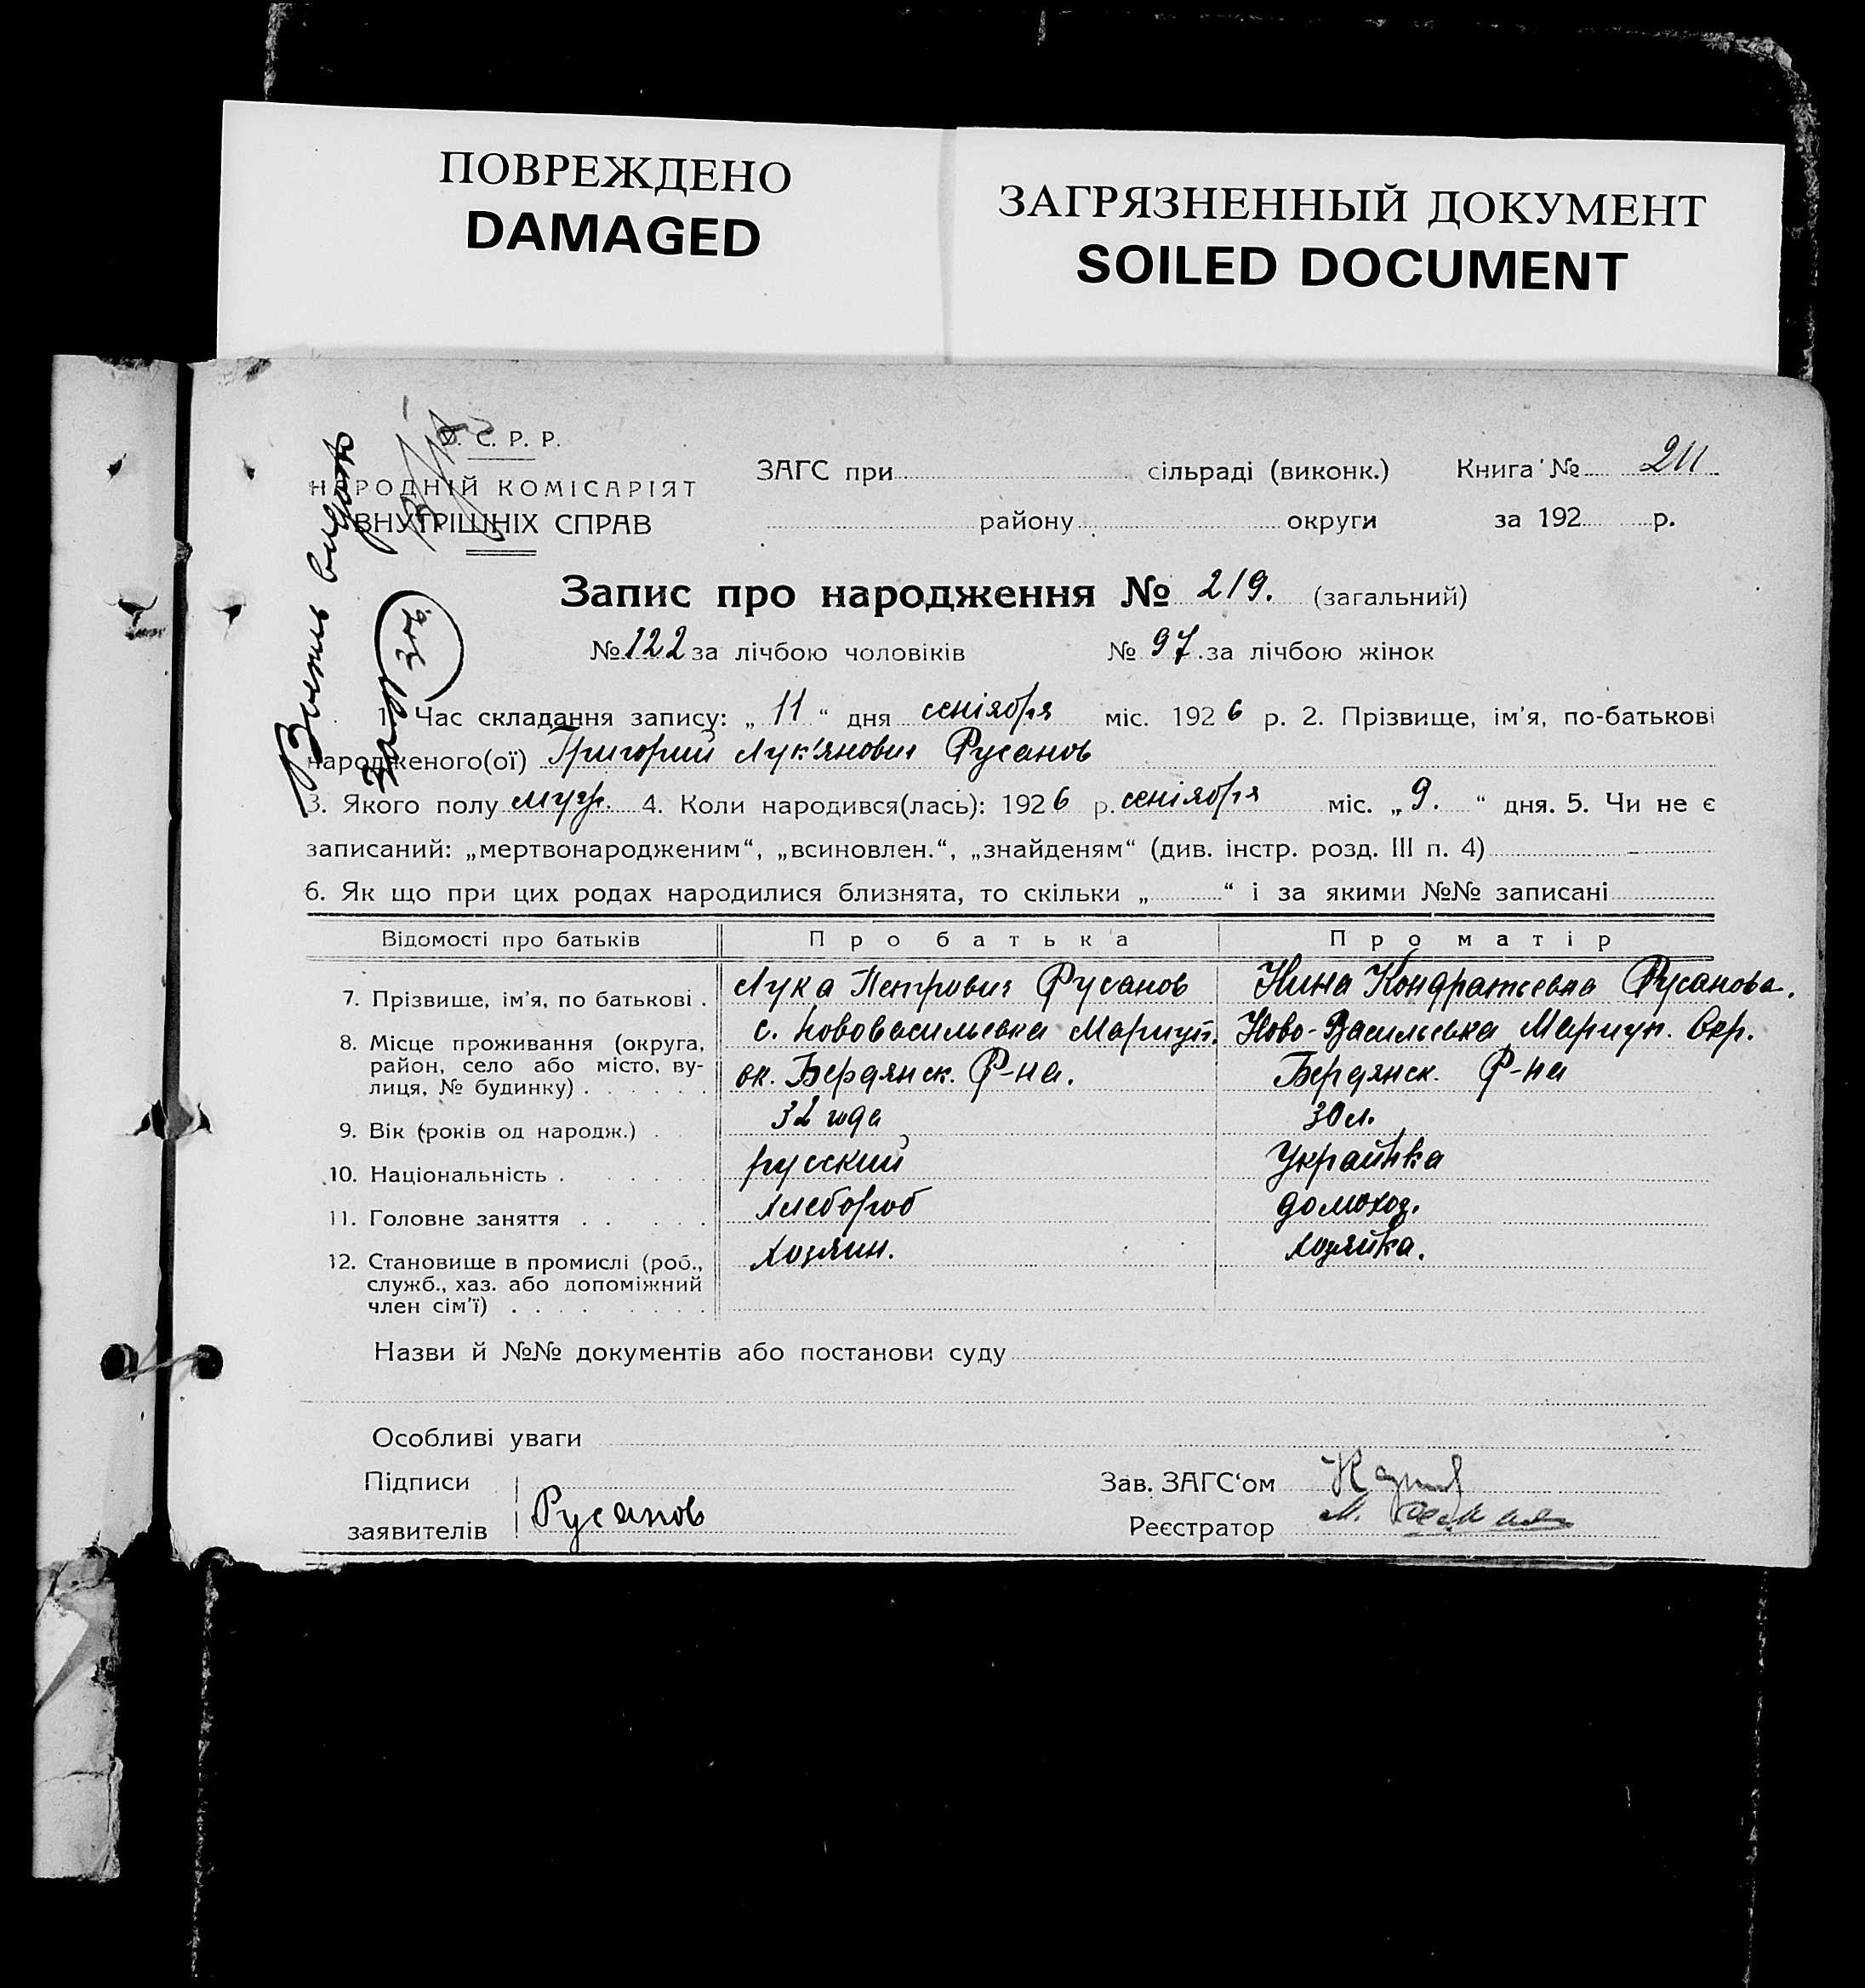 ПОВРЕЖДЕНО
DAMAGED
ЗАГРЯЗНЕННЫЙ ДОКУМЕНТ
SOILED DOCUMENT
У. С. Р. Р.
НАРОДНІЙ КОМІСАРІЯТ
ВНУТРІШНІХ СПРАВ
ЗАГС при сільраді (виконк.) Книга № 211
району округи за 192 р.
Запис про народження № 219. (загальний)
№ 122 за лічбою чоловіків № 97. за лічбою жінок
1. Час складання запису: „ 11 “ дня сентября міс. 1926 р. 2. Прізвище, ім'я, по-батькові
народженого(ої) Григорий Лук'янович Русанов
3. Якого полу муж. 4. Коли народився(лась): 1926 р. сентября міс. „ 9. “ дня. 5. Чи не є
записаний: „мертвонародженим“, „всиновлен.“, „знайденям“ (див. інстр. розд. III п. 4)
6. Як що при цих родах народилися близнята, то скільки „ “ і за якими №№ записані
Відомості про батьків Про батька Про матір
7. Прізвище, ім'я, по батькові . Лука Петрович Русанов Нина Кондратьевна Русанова.
8. Місце проживання (округа, район, село або місто, вулиця, № будинку) . с. Нововасильевка Мариуп. Ново-Васильевка Мариуп. Окр.
ок. Бердянск. Р-на. Бердянск. Р-на
9. Вік (років од народж.) . 32 года 30 л.
10. Національність . русский Украинка
11. Головне заняття . . хлебороб домохоз.
12. Становище в промислі (роб., служб., хаз. або допоміжний член сім'ї) . хозяин. хозяйка.
Назви й №№ документів або постанови суду
Особливі уваги
Підписи
заявителів Русанов
Зав. ЗАГС‘ом
Реєстратор